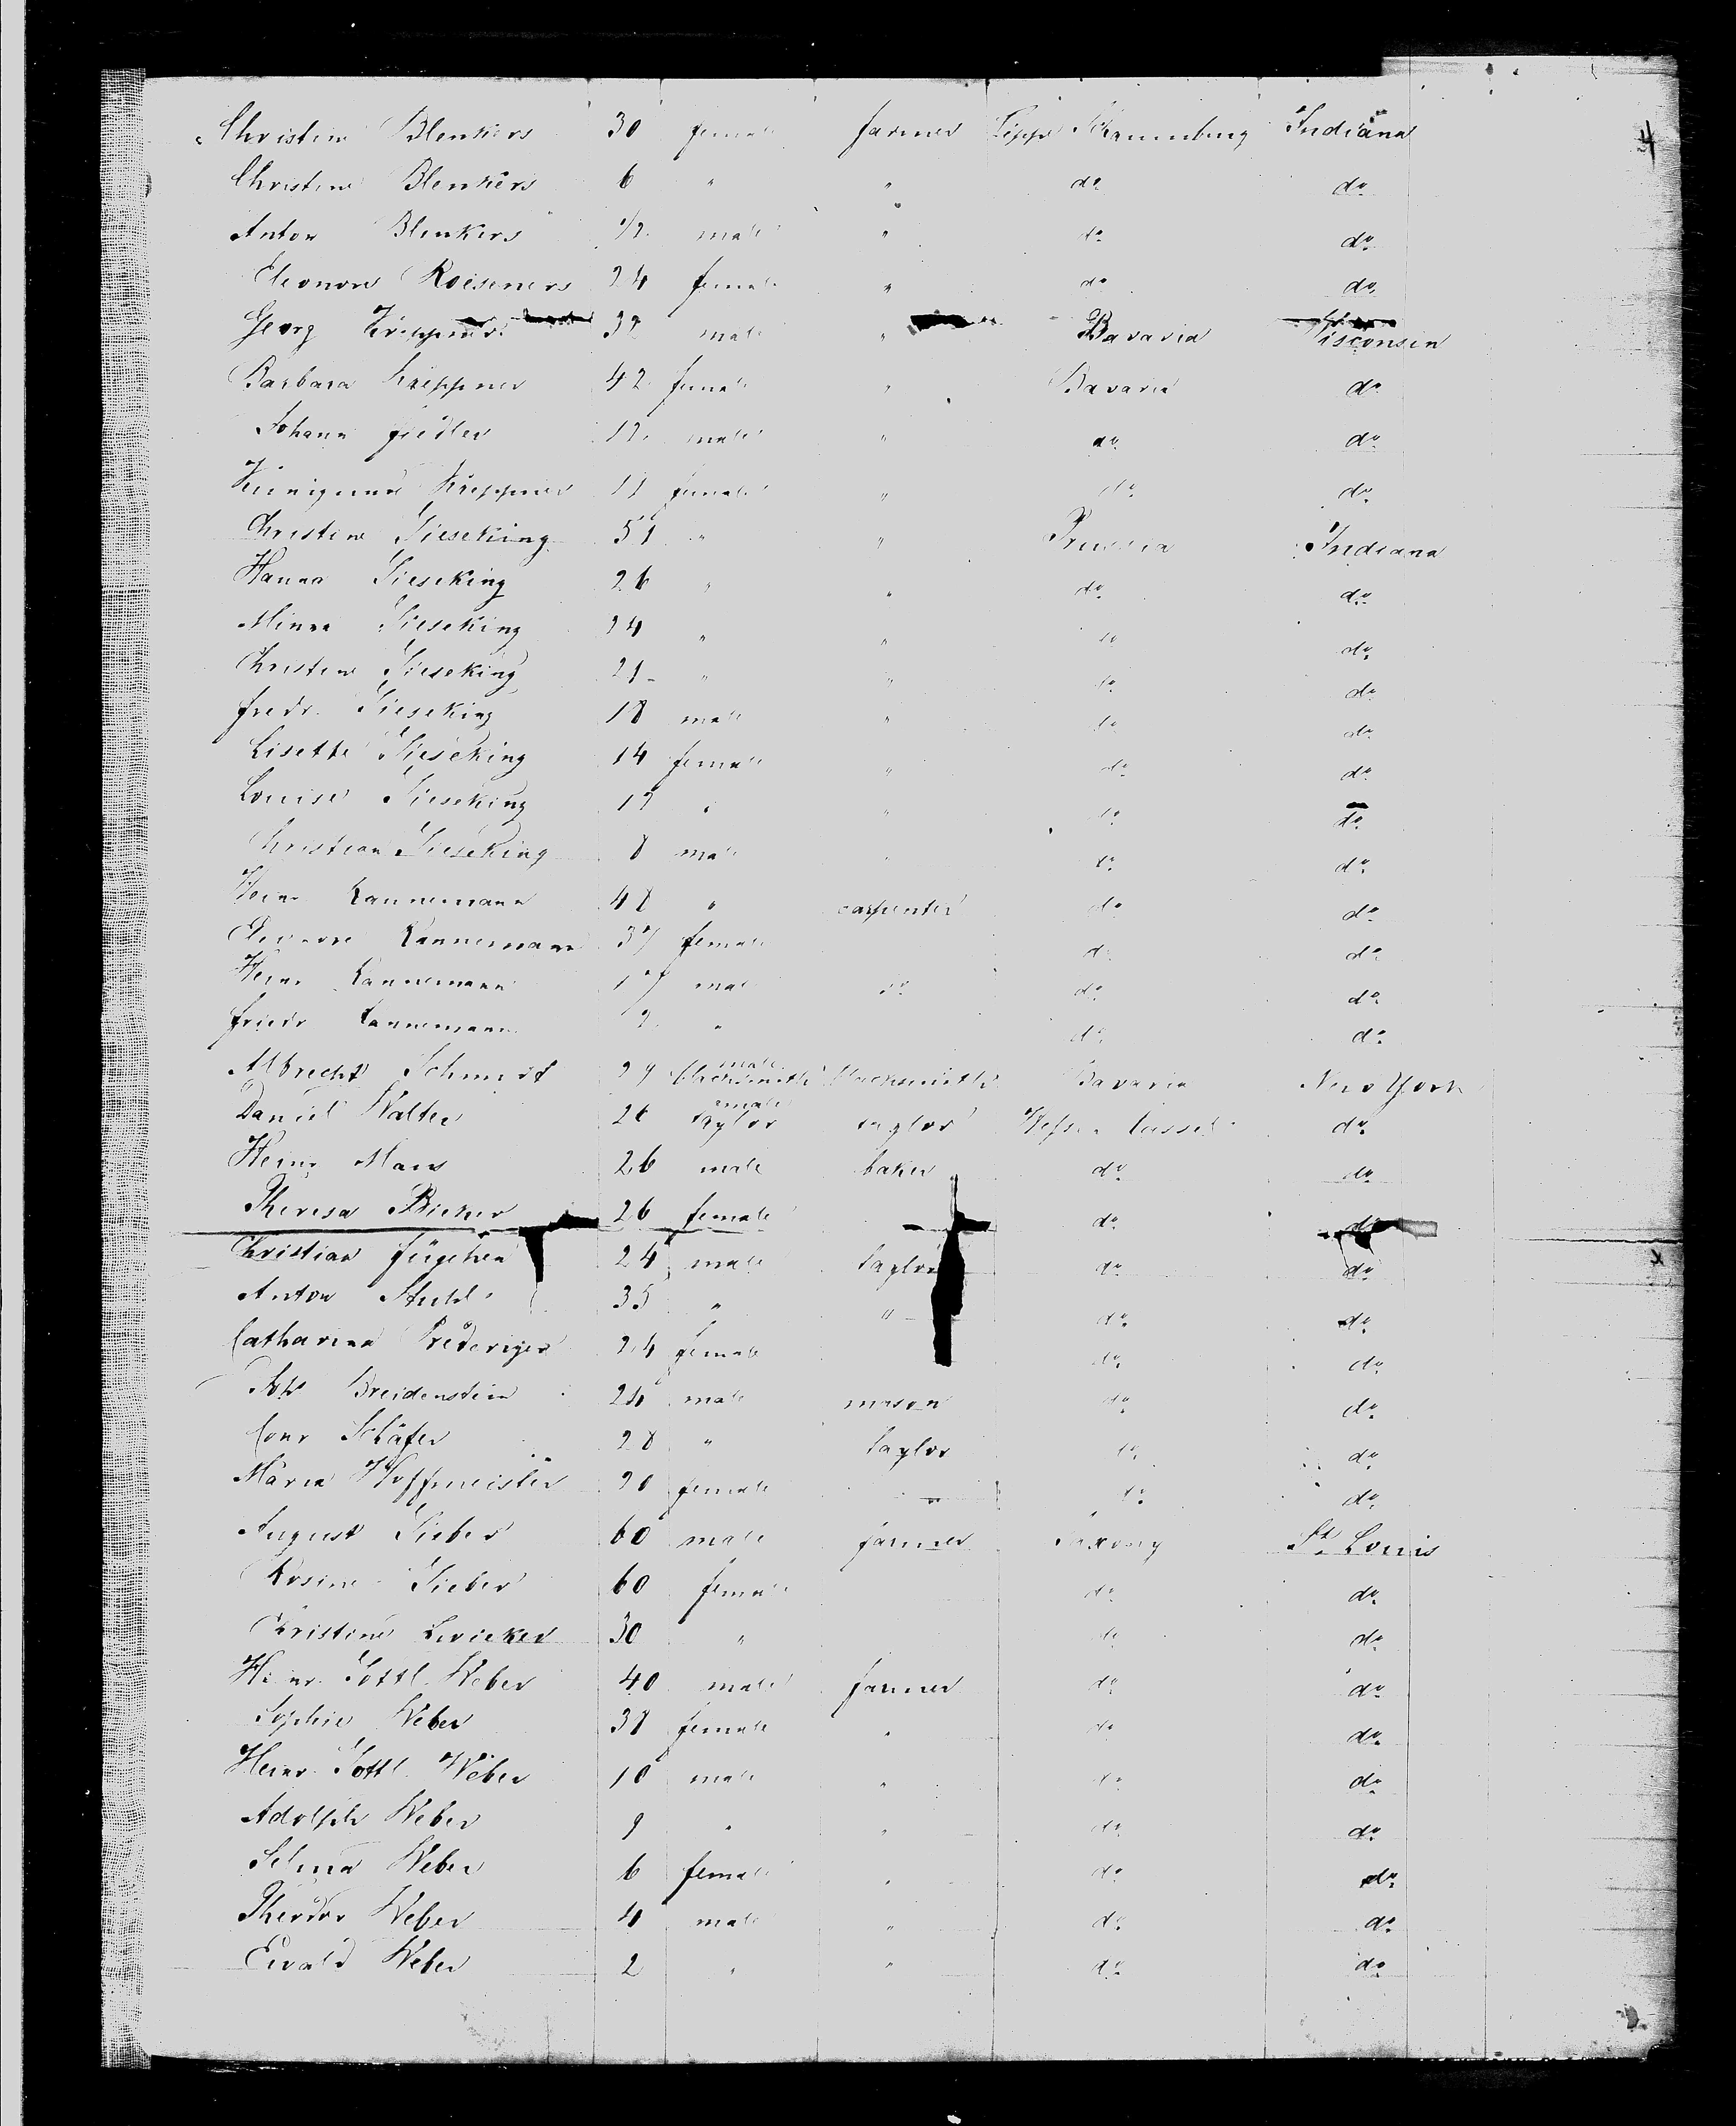 4
Christine Blenkers 30 female farmer Lippe Schaumburg Indiana
Christine Blenkers 6 " " do do
Anton Blenkers 1/2 male " do do
Eleonore Roeseners 24 female " do do
Georg Kreppner 32 male " Bavaria Wisconsin
Barbara Kreppner 42 female " Bavaria do
Johann Fiedler 12 male " do do
Kunigund Kreppner 11 female " do do
Christine Gieseking 51 " " Prussia Indiana
Hanna Gieseking 26 " " do do
Minna Gieseking 24 " " do do
Christine Gieseking 21 " " do do
Fredr. Gieseking 18 male " do do
Lisette Gieseking 14 female " do do
Louise Gieseking 12 " " do do
Christian Gieseking 8 male " do do
Heinr Kannemann 48 " carpenter do do
Eleonore Kannemann 37 female do do
Heinr Kannemann 17 male do do do
Friedr Kannemann 2 " do do
Albrecht Schmidt male blacksmith blacksmith Bavaria New York
Daniel Walter 26 male taylor taylor Hessen Cassel do
Heinr Maus 26 male baker do do
Theresa 26 female do do
Christian 24 male taylor do do
Anton Stuhl 35 " " do do
Catharina 24 female do do
Joh Breidenstein 24 male mason do do
Conr Schäfer 28 " taylor do do
Maria Hoffmeister 20 female do do
August Sieber 60 male farmer Saxony St. Louis
Rosine Sieber 60 female do do
Christine 30 " do do
Heinr. Gottl. Weber 40 male farmer do do
Sophie Weber 38 female " do do
Heinr. Gottl. Weber 10 male " do do
Adolph Weber 9 " " do do
Selma Weber 6 female " do do
Theodor Weber 4 male " do do
Ewald Weber 2 " " do do